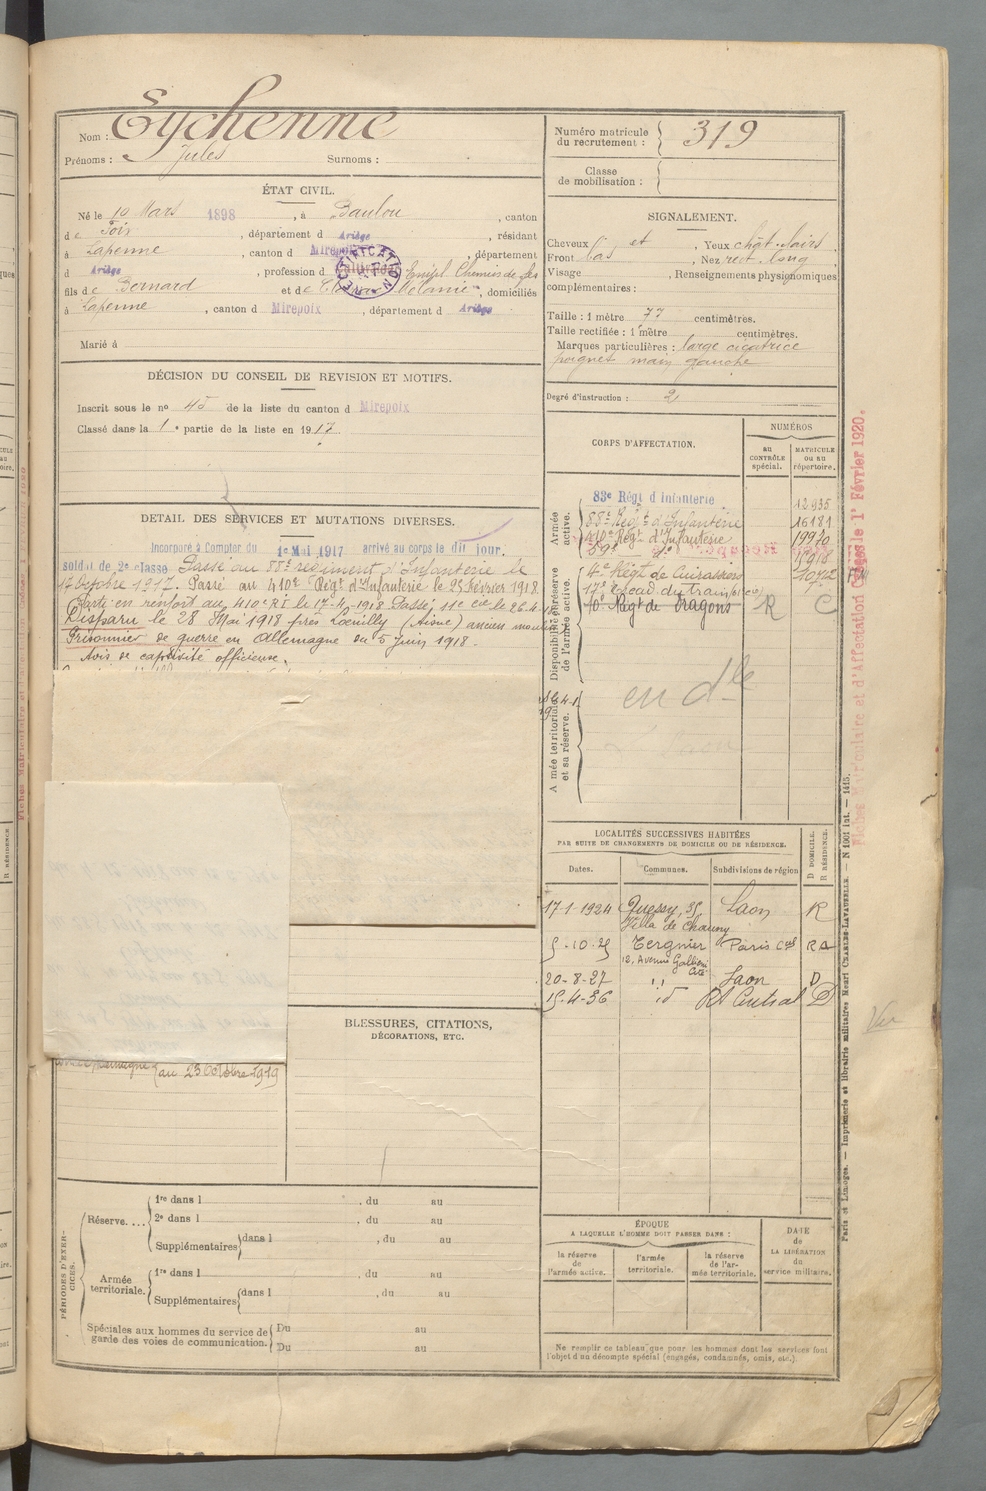 Nom : Eychenne
Prénoms : Jules Surnoms :
ÉTAT CIVIL.
Né le 10 Mars 1898, à Baulou, canton
de Foix, département d Ariège, résidant
à Lapenne, canton d Mirepoix, département
d Ariège, profession d Cultivateur Empl. Chemins de fer
fils de Bernard et de Mélanie, domiciliés
à Lapenne, canton d Mirepoix, département d Ariège
Marié à
DÉCISION DU CONSEIL DE REVISION ET MOTIFS.
Inscrit sous le nº 45 de la liste du canton d Mirepoix
Classé dans la 1e partie de la liste en 1917.
DETAIL DES SERVICES ET MUTATIONS DIVERSES.
Incorporé à Compter du 1er Mai 1917 arrivé au corps le dit jour.
soldat de 2e classe. Passé au 88e régiment d'Infanterie le
17 octobre 1917. Passé au 410e Régt d'Infanterie le 25 Février 1918.
Parti en renfort au 410e RI le 17-4-1918 Passé 11e Cie le 26-4-18
Disparu le 28 Mai 1918 près Loeuilly (Aisne)
Prisonnier de guerre en Allemagne du 5 Juin 1918.
Avis de captivité officieuse.
au 23 Octobre 1919
BLESSURES, CITATIONS,
DÉCORATIONS, ETC.
PÉRIODES D'EXERCICES.
Réserve....
1re dans l , du au
2e dans l , du au
Supplémentaires dans l , du au
Armée territoriale.
1re dans l , du au
Supplémentaires dans l , du au
Spéciales aux hommes du service de garde des voies de communication.
Du au
Du au
Numéro matricule du recrutement : 319
Classe de mobilisation :
SIGNALEMENT.
Cheveux , Yeux chât. clairs
Front bas , Nez rect. long
Visage , Renseignements physionomiques
complémentaires :
Taille : 1 mètre 77 centimètres.
Taille rectifiée : 1 mètre centimètres.
Marques particulières : large cicatrice
poignet main gauche
Degré d'instruction : 2
CORPS D'AFFECTATION.
NUMÉROS
au CONTRÔLE spécial.
MATRICULE ou au répertoire.
Armée active.
83e Régt d'Infanterie 12935
88e Régt d'Infanterie 16181
410e Régt d'Infanterie 19970
59e do
Disponibilité et réserve de l'armée active.
4e Régt de Cuirassiers
17e Escad. du train
10e Régt de Dragons R C
en dle
Armée territoriale et sa réserve.
LOCALITÉS SUCCESSIVES HABITÉES
PAR SUITE DE CHANGEMENTS DE DOMICILE OU DE RÉSIDENCE.
Dates. Communes. Subdivisions de région D DOMICILE. R RÉSIDENCE.
17-1-1924 Quessy, 35, Laon R
Villa de Chauny
5-10-25 Tergnier Paris Cal RA
12, Avenue Gallieni
Cité
20-8-27 " Laon D
15-4-36 id Rt Central D
ÉPOQUE
A LAQUELLE L'HOMME DOIT PASSER DANS :
la réserve de l'armée active.
l'armée territoriale.
la réserve de l'armée territoriale.
DATE de LA LIBÉRATION du service militaire.
Ne remplir ce tableau que pour les hommes dont les services font
l'objet d'un décompte spécial (engagés, condamnés, omis, etc.).
Paris et Limoges. — Imprimerie et librairie militaires Henri CHARLES-LAVAUZELLE. — N 1001 Int. — 1415.
Fiches Matriculaire et d'Affectation Créées le 1er Février 1920.
Vu